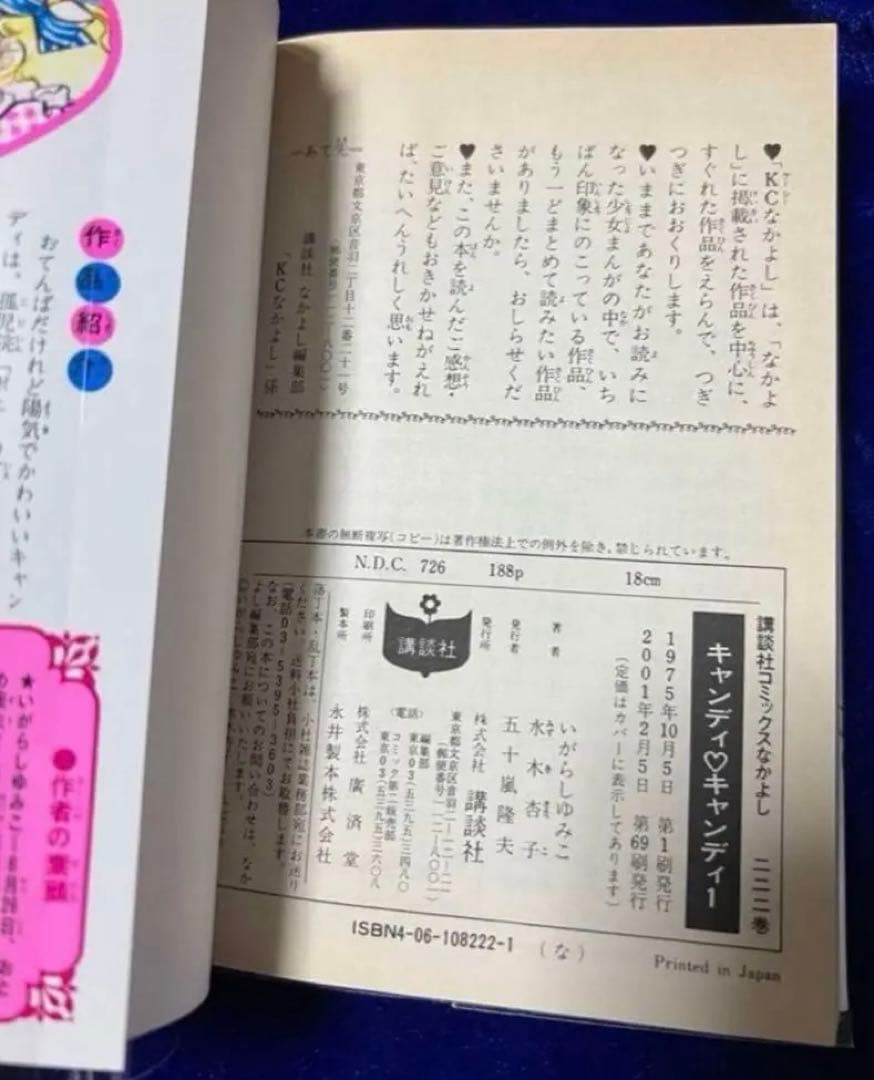 ♥「KCなかよし」は、「なかよ
し」に掲載された作品を中心に、
すぐれた作品をえらんで、つぎ
つぎにおおくりします。
♥いままであなたがお読みに
なった少女まんがの中で、いち
ばん印象にのこっている作品、
もう一どまとめて読みたい作品
がありましたら、おしらせくだ
さいませんか。
♥また、この本を読んだご感想・
ご意見などもおきかせねがえれ
ば、たいへんうれしく思います。
—あて先—
東京都文京区音羽二丁目十二番二十一号
(郵便番号一一二-八〇〇一)
講談社 なかよし編集部
「KCなかよし」係
本書の無断複写(コピー)は著作権法上での例外を除き、禁じられています。
N.D.C. 726 188p 18cm
講談社コミックスなかよし 二二二巻
キャンディ♡キャンディ1
1975年10月5日 第1刷発行
2001年2月5日 第69刷発行
(定価はカバーに表示してあります)
著者 いがらしゆみこ
水木杏子
発行者 五十嵐隆夫
発行所 株式会社 講談社
東京都文京区音羽二-一二-二一
(郵便番号一一二-八〇〇一)
〈電話〉
編集部
東京03(五三九五)三四八〇
コミック第二販売部
東京03(五三九五)三六〇八
講談社
印刷所 株式会社 廣済堂
製本所 永井製本株式会社
落丁本・乱丁本は、小社雑誌業務部宛にお送り
ください。送料小社負担にてお取替します。
(電話03-5395-3603)
なお、この本についてのお問い合わせは、なか
よし編集部宛にお願いいたします。
ISBN4-06-108222-1 (な)
Printed in Japan
作品紹介
おてんばだけれど陽気でかわいいキャン
ディは、孤児院
●作者の横顔
★いがらしゆみこ